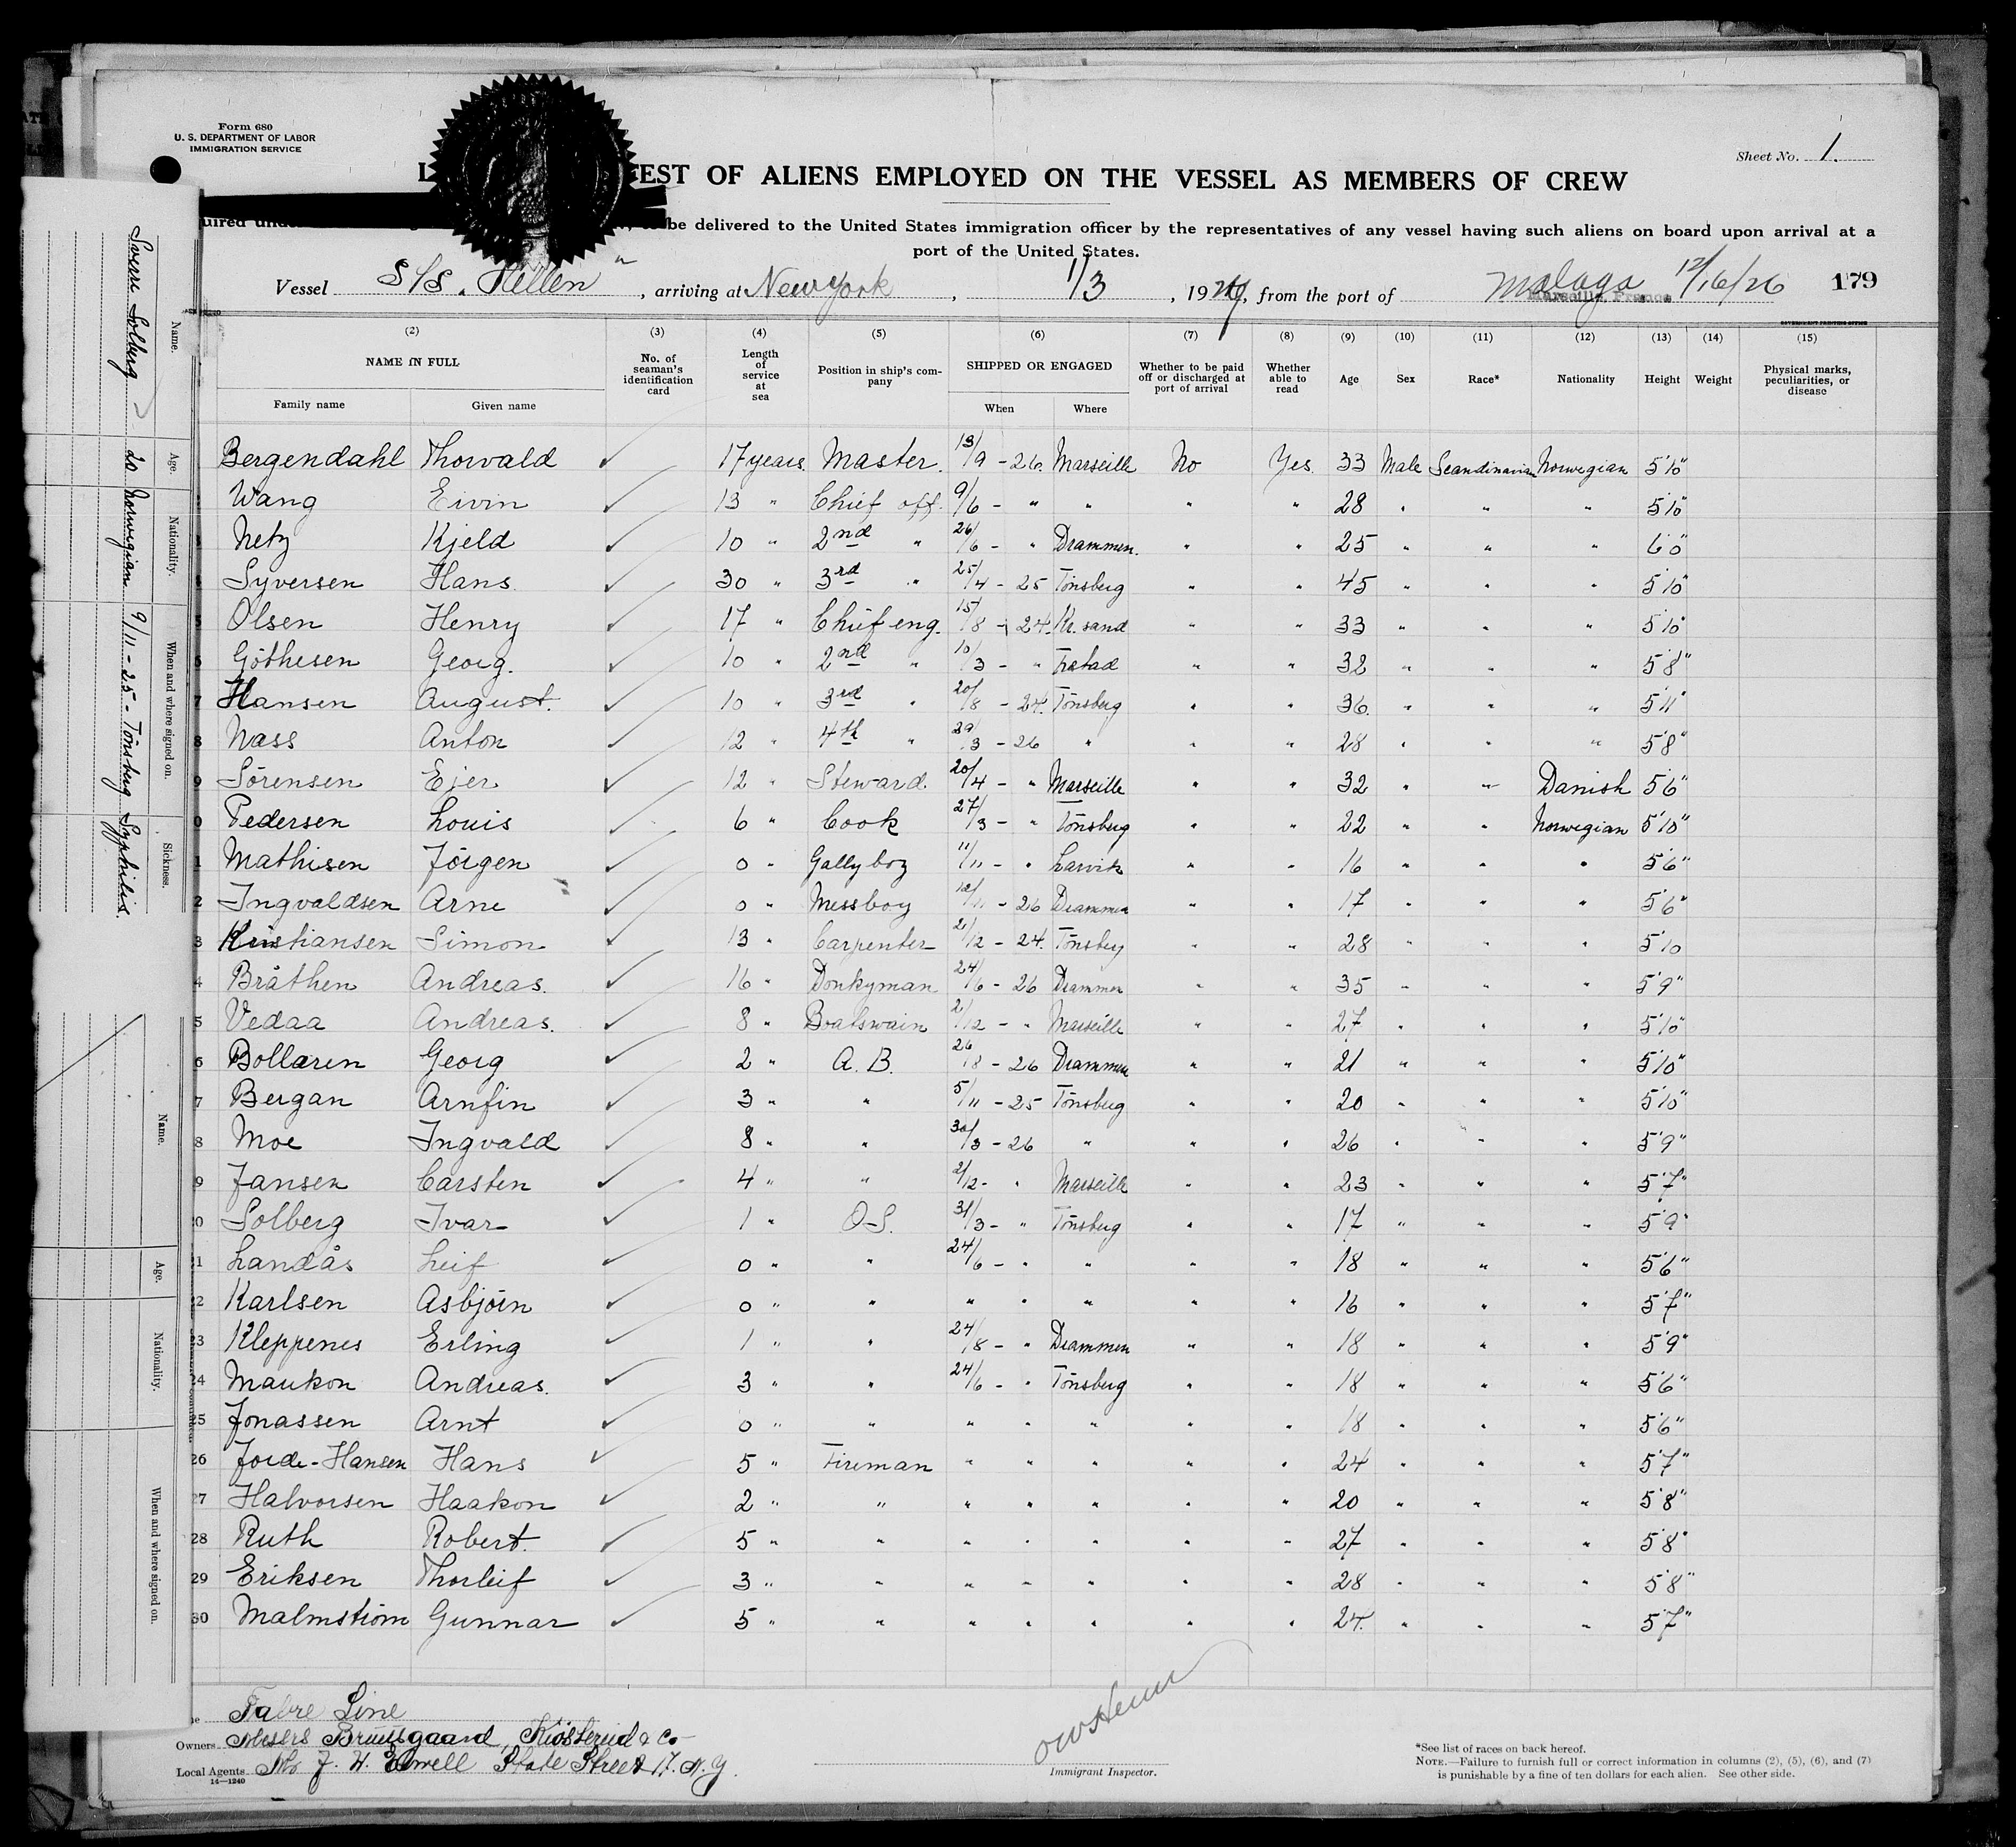 Form 680
U. S. DEPARTMENT OF LABOR
IMMIGRATION SERVICE
Sheet No. 1.
EST OF ALIENS EMPLOYED ON THE VESSEL AS MEMBERS OF CREW
be delivered to the United States immigration officer by the representatives of any vessel having such aliens on board upon arrival at a
port of the United States.
Vessel S/S. Hellen", arriving at New York, 1/3, 1927, from the port of Malaga 12/16/26 179
Marseille, France
GOVERNMENT PRINTING OFFICE
(2) (3) (4) (5) (6) (7) (8) (9) (10) (11) (12) (13) (14) (15)
NAME IN FULL Family name Given name No. of seaman's identification card Length of service at sea Position in ship's company SHIPPED OR ENGAGED When Where Whether to be paid off or discharged at port of arrival Whether able to read Age Sex Race* Nationality Height Weight Physical marks, peculiarities, or disease
Bergendahl Thorvald ✓ 17 years. Master. 13/9 - 26. Marseille No Yes. 33 Male Scandinavian Norwegian 5'10"
Wang Eivin ✓ 13 " Chief off. 9/6 - " " " " 28 " " " 5'10"
Netz Kjeld ✓ 10 " 2nd " 26/6 - " Drammen. " " 25 " " " 6'0"
Syversen Hans ✓ 30 " 3rd " 25/4 - 25 Tönsberg " " 45 " " " 5'10"
5 Olsen Henry ✓ 17 " Chief eng. 15/8 - 24. Kr. sand " " 33 " " " 5'10"
6 Göthesen Georg. ✓ 10 " 2nd " 10/3 - " " " 32 " " " 5'8"
7 Hansen August. ✓ 10 " 3rd " 20/8 - 24. Tönsberg " " 36. " " " 5'11"
8 Nass Anton ✓ 12 " 4th " 29/3 - 26 " " " 28 " " " 5'8"
9 Sörensen Ejer ✓ 12 " Steward. 20/4 - " Marseille " " 32 " " Danish 5'6"
0 Pedersen Louis ✓ 6 " Cook 27/3 - " Tönsberg " " 22 " " Norwegian 5'10"
1 Mathisen Jörgen ✓ 0 " Gallyboy 11/11 - " Larvik " " 16 " " " 5'6"
2 Ingvaldsen Arne ✓ 0 " Messboy 12/11 - 26 Drammen " " 17 " " " 5'6"
3 Kristiansen Simon ✓ 13 " Carpenter 2/12 - 24. Tönsberg " " 28 " " " 5'10
4 Bråthen Andreas. ✓ 16 " Donkyman 24/6 - 26 Drammen " " 35 " " " 5'9"
5 Vedaa Andreas. ✓ 8 " Boatswain 2/12 - " Marseille " " 27 " " " 5'10"
6 Bollaren Georg ✓ 2 " A. B. 26/8 - 26 Drammen " " 21 " " " 5'10"
7 Bergan Arnfin ✓ 3 " " 5/11 - 25 Tönsberg " " 20 " " " 5'10"
8 Moe Ingvald ✓ 8 " " 30/3 - 26 " " " 26 " " " 5'9"
9 Jansen Carsten ✓ 4 " " 2/12 - " Marseille " " 23 " " " 5'7"
0 Solberg Ivar ✓ 1 " O.S. 31/3 - " Tönsberg " " 17 " " " 5'9"
1 Landås Leif ✓ 0 " " 24/6 - " " " " 18 " " " 5'6"
22 Karlsen Asbjörn ✓ 0 " " " " " " " 16 " " " 5'7"
23 Kleppenes Erling ✓ 1 " " 24/8 - " Drammen " " 18 " " " 5'9"
24 Maukon Andreas. ✓ 3 " " 24/6 - " Tönsberg " " 18 " " " 5'6"
25 Jonassen Arnt ✓ 0 " " " " " " " 18 " " " 5'6"
26 Jorde-Hansen Hans ✓ 5 " Fireman " " " " " 24 " " " 5'7"
27 Halvorsen Haakon ✓ 2 " " " " " " " 20 " " " 5'8"
28 Ruth Robert. ✓ 5 " " " " " " " 27 " " " 5'8"
29 Eriksen Thorleif ✓ 3 " " " " " " " 28 " " " 5'8"
30 Malmström Gunnar ✓ 5 " " " " " " " 24. " " " 5'7"
Fabre Line
Owners Messrs Bruusgaard, Kiösterud & Co-
Local Agents J. W. Elwell State Street 17. N.Y.
14—1240
Immigrant Inspector.
*See list of races on back hereof.
NOTE.—Failure to furnish full or correct information in columns (2), (5), (6), and (7)
is punishable by a fine of ten dollars for each alien. See other side.
Name. Age. Nationality. When and where signed on. Sickness.
Sverre Solberg 20 Norwegian 9/11-25- Tönsberg Syphilis.
Name. Age. Nationality. When and where signed on.